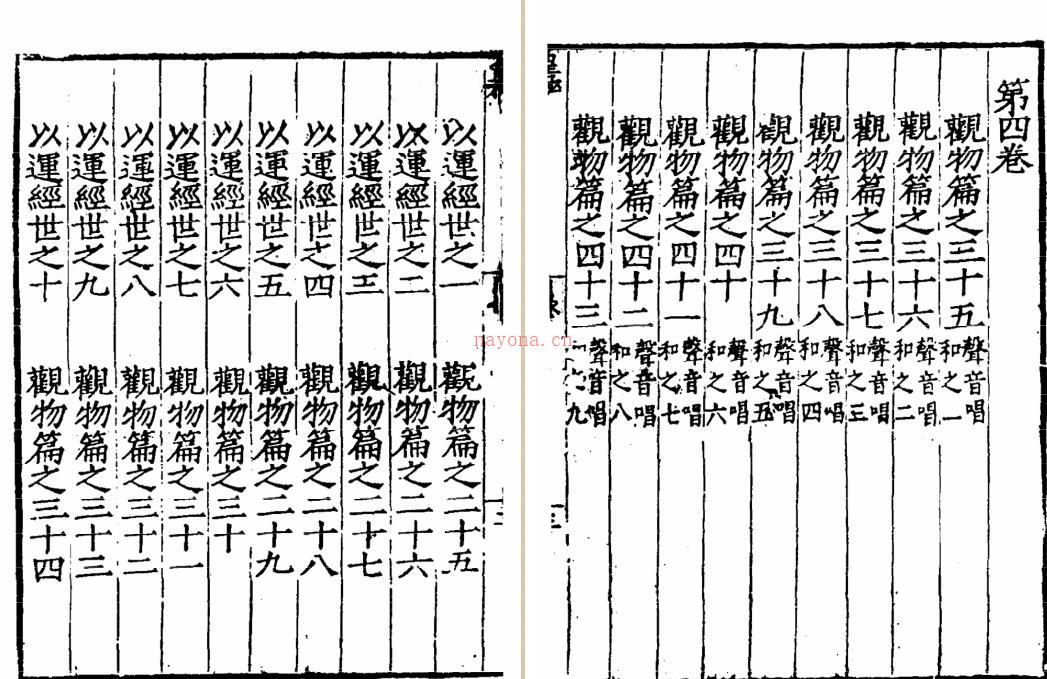 以運經世之一 觀物篇之二十五
以運經世之二 觀物篇之二十六
以運經世之三 觀物篇之二十七
以運經世之四 觀物篇之二十八
以運經世之五 觀物篇之二十九
以運經世之六 觀物篇之三十
以運經世之七 觀物篇之三十一
以運經世之八 觀物篇之三十二
以運經世之九 觀物篇之三十三
以運經世之十 觀物篇之三十四
第四卷
觀物篇之三十五 聲音唱和之一
觀物篇之三十六 聲音唱和之二
觀物篇之三十七 聲音唱和之三
觀物篇之三十八 聲音唱和之四
觀物篇之三十九 聲音唱和之五
觀物篇之四十 聲音唱和之六
觀物篇之四十一 聲音唱和之七
觀物篇之四十二 聲音唱和之八
觀物篇之四十三 聲音唱和之九
nayona.cn